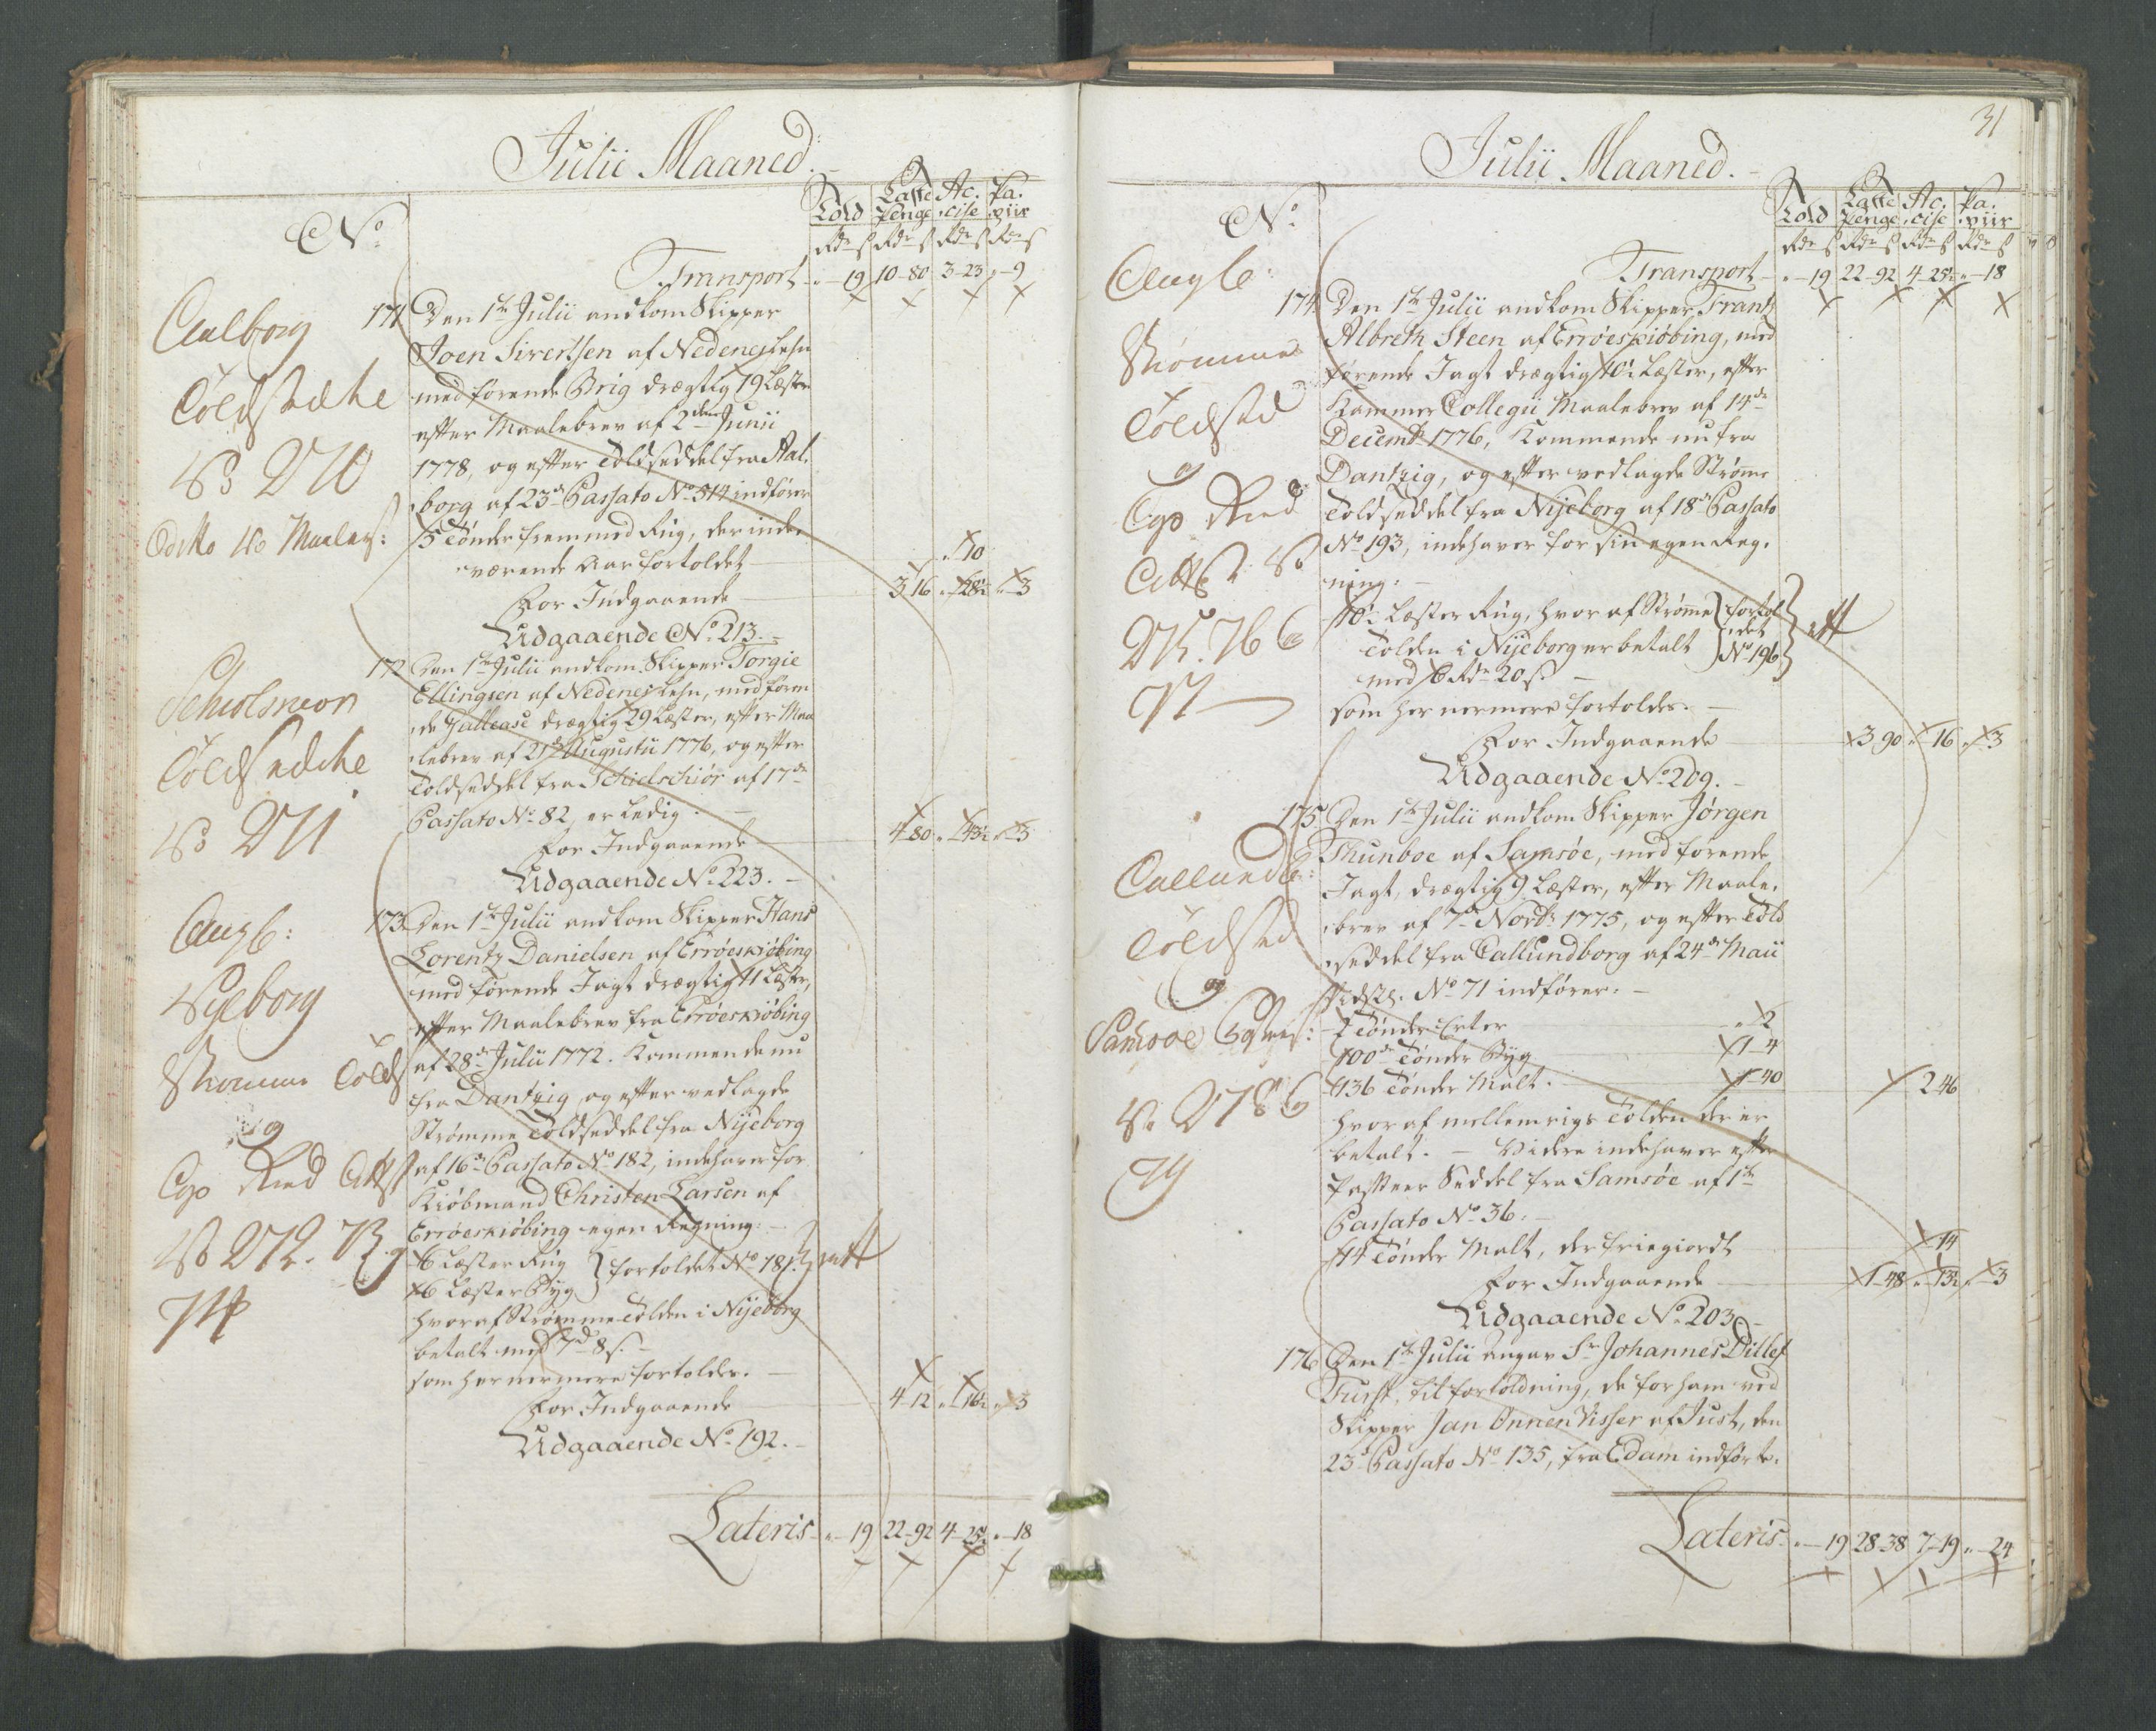 Julii Maaned.
No
Told
Laste Penge
Ac. cise
Pa. piir
Rdr ß Rdr ß Rdr ß Rdr ß
Transport " 19 10-80 3-23 " 9
Aalborg
Toldsedele
No 270
171 Den 1te Julii ankom Skipper
Joen Sivertsen af Nedenes Lehn
med førende Brig drægtig 19 Læster
efter Maalebrev af 2den Junii
1778, og efter Toldseddel fra Aal-
borg af 23de Passato No 514 indfører
5 Tønder fremmed Rug, der inde-
værende Aar fortoldet " 10
For Indgaaende 3 16 " 28½ " 3
Udgaaende No 213.
Toldsedele
No 271
172 Den 1te Julii ankom Skipper Torgie
Ellingsen af Nedenes Lehn, med føren
de Gallease drægtig 29 Læster, efter Maa
lebrev af 21de Augustii 1776, og efter
Toldseddel fra Schielschiør af 17de
Passato No 82, er ledig.
For Indgaaende 4-80 " 43½ " 3
Udgaaende No 223.
Nyeborg
Strømme Tolds
og
No 272. 73 og
74
173 Den 1te Julii ankom Skipper Hans
Lorentz Danielsen af Errøeskiøbing
med førende Jagt drægtig 11 Læster,
efter Maalebrev fra Errøeskiøbing
af 28de Julii 1772. Kommende nu
fra Dantzig og efter vedlagde
Strømme Toldseddel fra Nijeborg
af 16de Passato No 182, indehaver for
Kiøbmand Christen Larsen af
Errøeskiøbing egen Regning.
6 Læster Rug
6 Læster Byg } fortoldet No 181.
hvoraf Strømme Tolden i Nijeborg
betalt med 7 d 8 ß.
som her nermere fortoldes.
For Indgaaende 4-12 " 16½ " 3
Udgaaende No 192.
Lateris " 19 22-92 4-25½ " 18
31
Julii Maaned.
No
Told
Laste Penge
Ac. cise
Pa. piir
Rdr ß Rdr ß Rdr ß Rdr ß
Transport " 19 22-92 4-25½ " 18
Strømme
Toldsed
og
275. 76 &
77
174 Den 1te Julii ankom Skipper Frantz
Albreth Steen af Errøeskiøbing, med
førende Jagt drægtig 10½ Læster, efter
Kammer Collegii Maalebrev af 14de
Decembr 1776, Kommende nu fra
Dantzig, og efter vedlagde Strømme
Toldseddel fra Nijeborg af 18de Passato
No 193, indehaver for sin egen Reg-
ning.
10½ Læster Rug, hvoraf Strømme } fortol
Tolden i Nijeborg er betalt } det
med 6 Rdr 20 ß. No 196
som her nermere fortoldes.
For Indgaaende 3 90 " 16 " 3
Udgaaende No 209.
Callundb:
Toldsed
og
Samsøe
No 278 &
79
175 Den 1te Julii ankom Skipper Jørgen
Thunboe af Samsøe, med førende
Jagt, drægtig 9 Læster, efter Maale-
brev af 7de Novbr 1775, og efter Told
seddel fra Callundborg af 24de Maii
sidstl. No 71 indfører.
2 Tønder Erter " 2
100de Tønder Byg 1-4
136 Tønder Malt. 1-40 2 46
hvoraf mellemrigs Tolden der er
betalt. - Videre indehaver efter
Passeer Seddel fra Samsøe af 1te
Passato No 36.
14 Tønder Malt, der friegiordt 14
For Indgaaende 1-48 " 13½ " 3
Udgaaende No 203
176 Den 1te Julii angav Sr Johannes Ditlef
Furst, til fortoldning, de for ham ved
Skipper Jan Onnen Visser af Just, den
23de Passato No 135, fra Edam indførte.
Lateris " 19 28-38 7-19 " 24